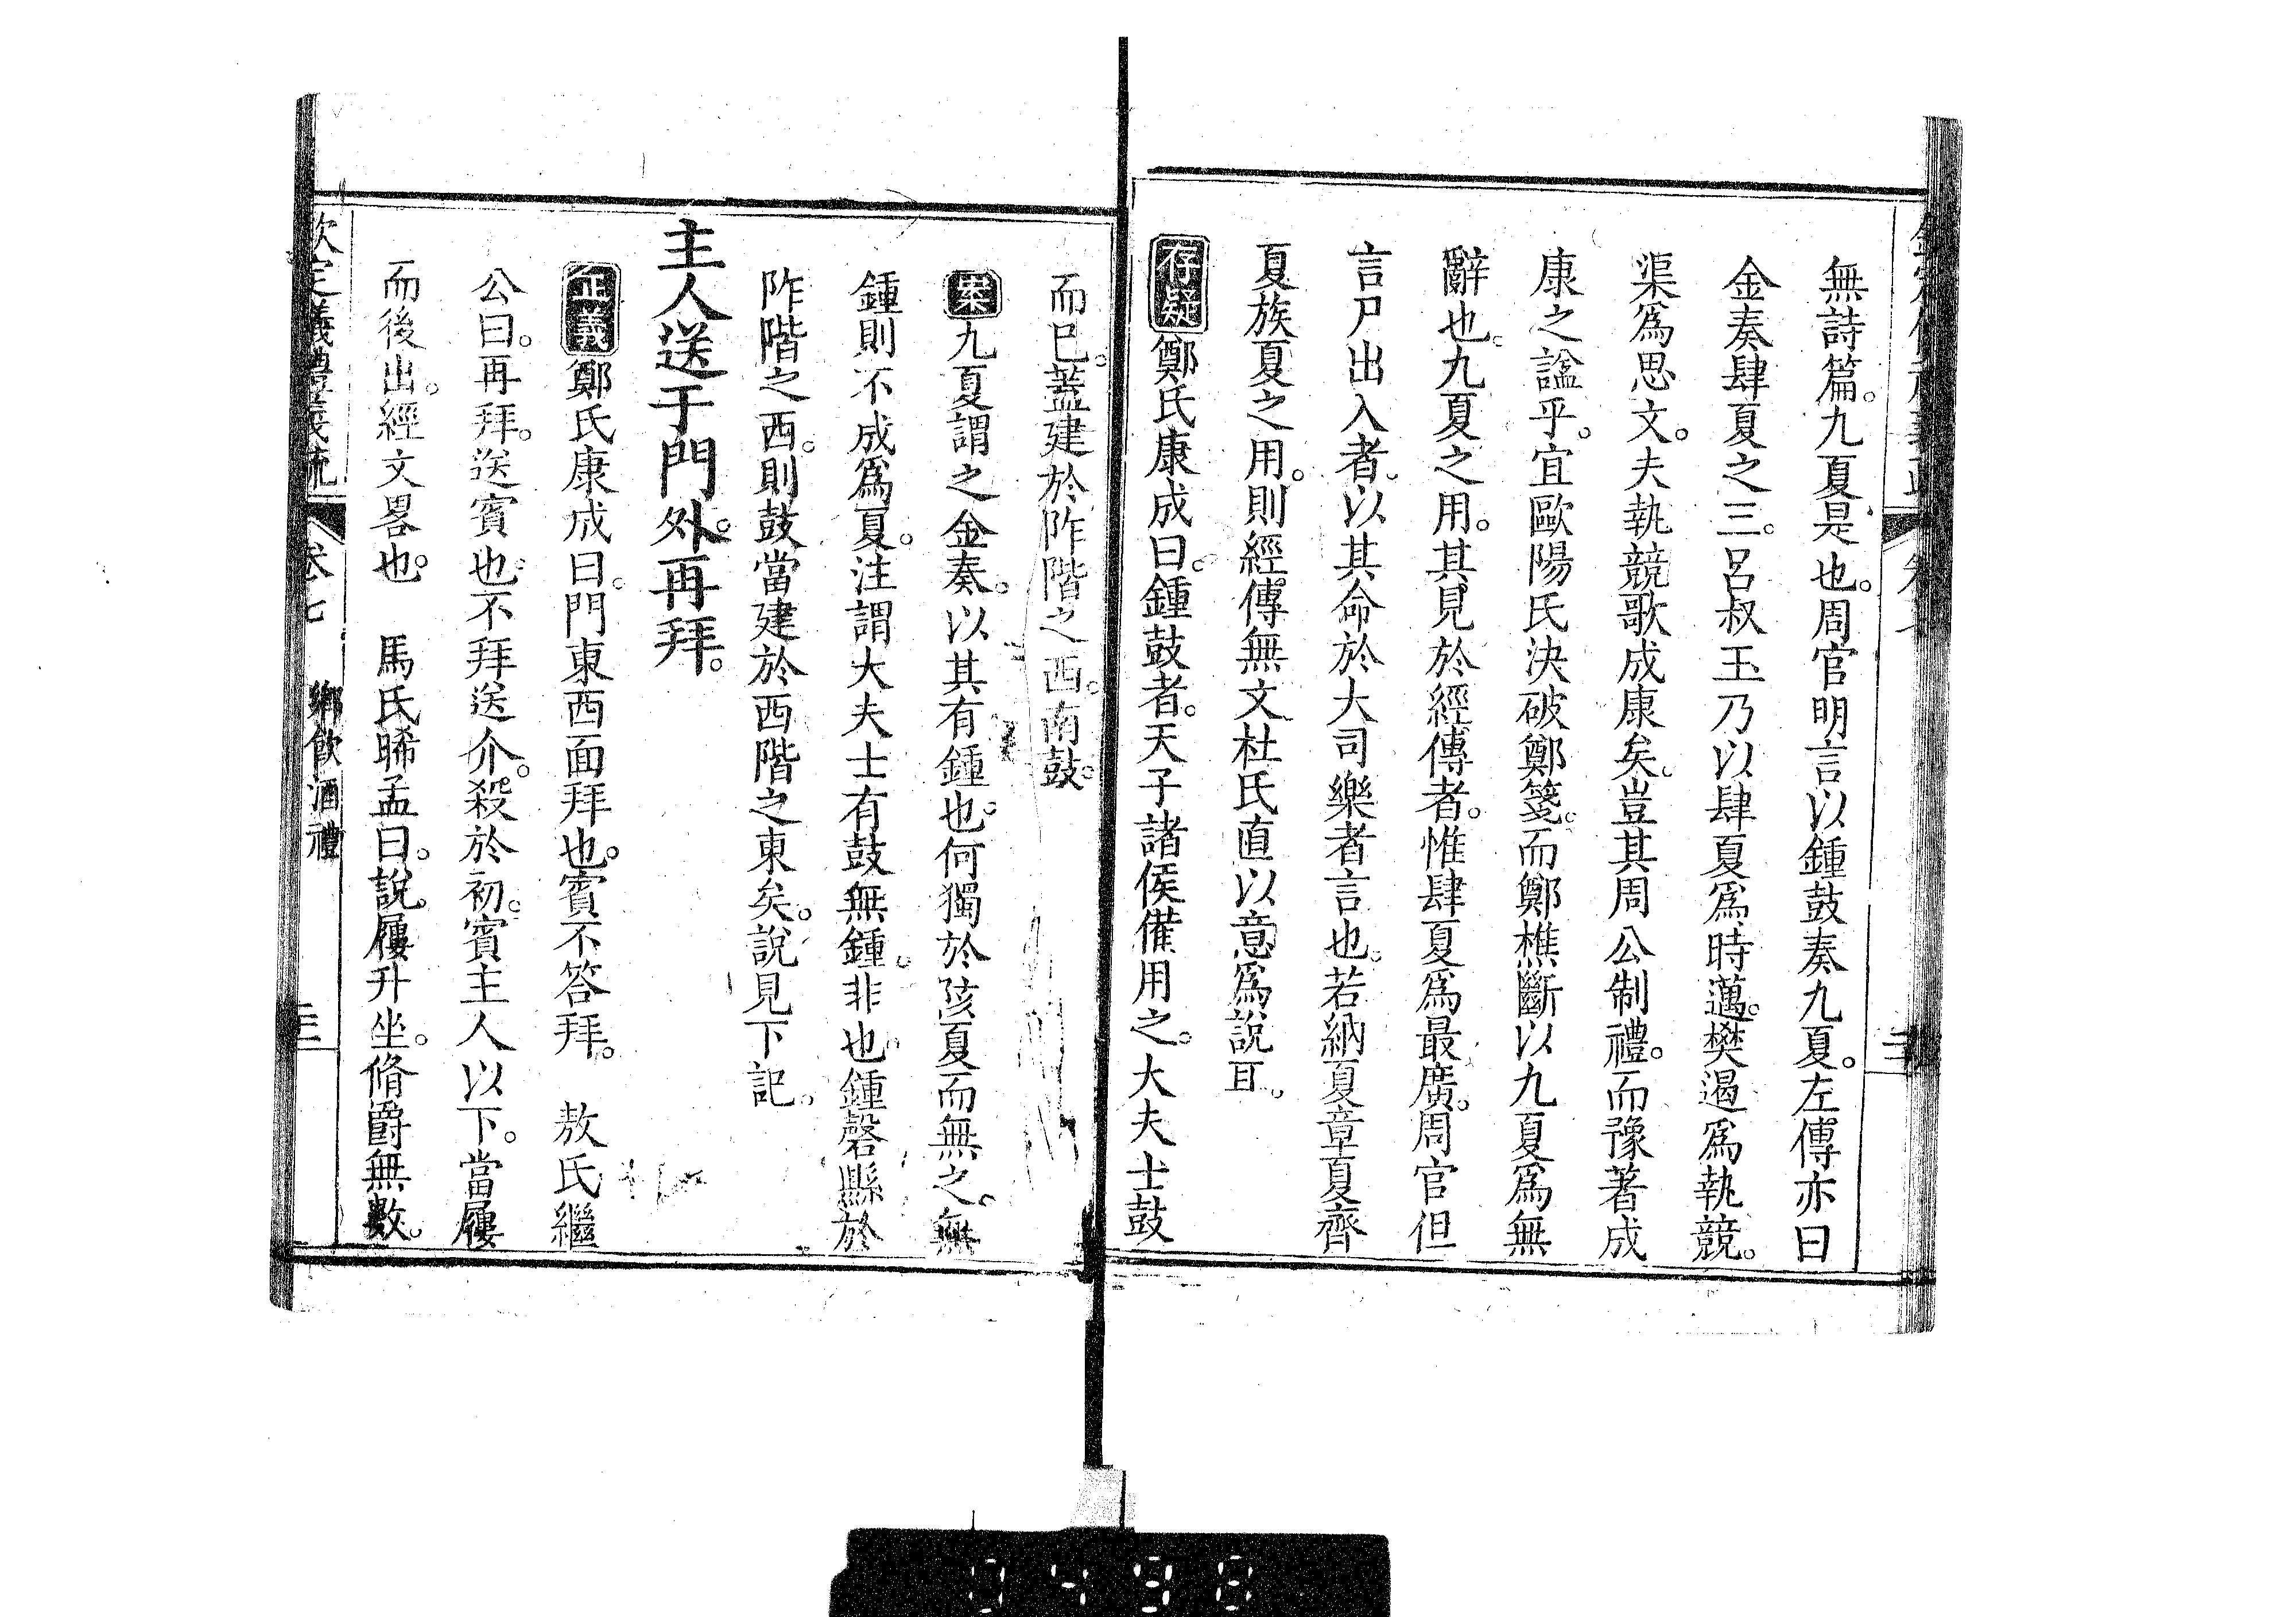 無詩篇。九夏是也。周官明言以鍾鼓奏九夏。左傳亦曰
金奏肆夏之三。呂叔玉乃以肆夏爲時邁。樊遏爲執競。
渠爲思文。夫執競歌成康矣。豈其周公制禮。而豫著成
康之諡乎。宜歐陽氏決破鄭箋。而鄭樵斷以九夏爲無
辭也。九夏之用。其見於經傳者。惟肆夏爲最廣。周官但
言尸出入者。以其命於大司樂者言也。若納夏章夏齊
夏族夏之用。則經傳無文杜氏直以意爲說耳。
存疑鄭氏康成曰。鍾鼓者。天子諸侯備用之。大夫士鼓
而已。蓋建於阼階之西。南鼓。
案九夏謂之金奏。以其有鍾也。何獨於陔夏而無之。無
鍾則不成爲夏。注謂大夫士有鼓無鍾。非也。鍾磬縣於
阼階之西。則鼓當建於西階之東矣。說見下記。
主人送于門外。再拜。
正義鄭氏康成曰。門東西面拜也。賓不答拜。 敖氏繼
公曰。再拜。送賓也。不拜送介。殺於初。賓主人以下。當屨
而後出。經文畧也。 馬氏晞孟曰。說屨升坐。脩爵無數。
欽定儀禮義疏 卷七 鄉飲酒禮